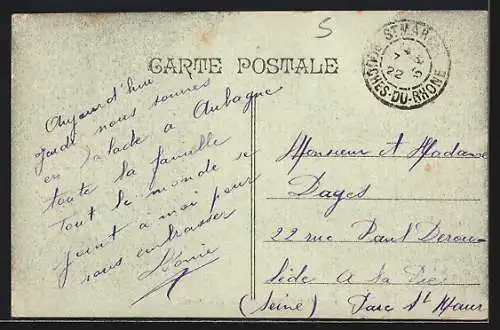 5
CARTE POSTALE
ST MAR
BOUCHES-DU-RHONE
22
Aujourd'hui
jeudi nous sommes
en balade à Aubagne
toute la famille
Tout le monde se
joint à moi pour
vous embrasser
Léonie
Monsieur et Madame
Dages
22 rue Paul Derou-
lède A La Pie
(Seine) Parc St Maur